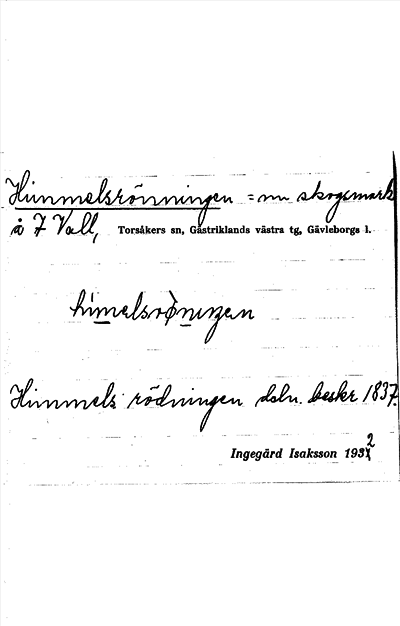 Himmelsrönningen = nu skogsmark
å 7 Vall, Torsåkers sn, Gästriklands västra tg, Gävleborgs l.
himelsrø̀nıŋen
Himmels rödningen dsln. beskr 1837.
Ingegärd Isaksson 1932